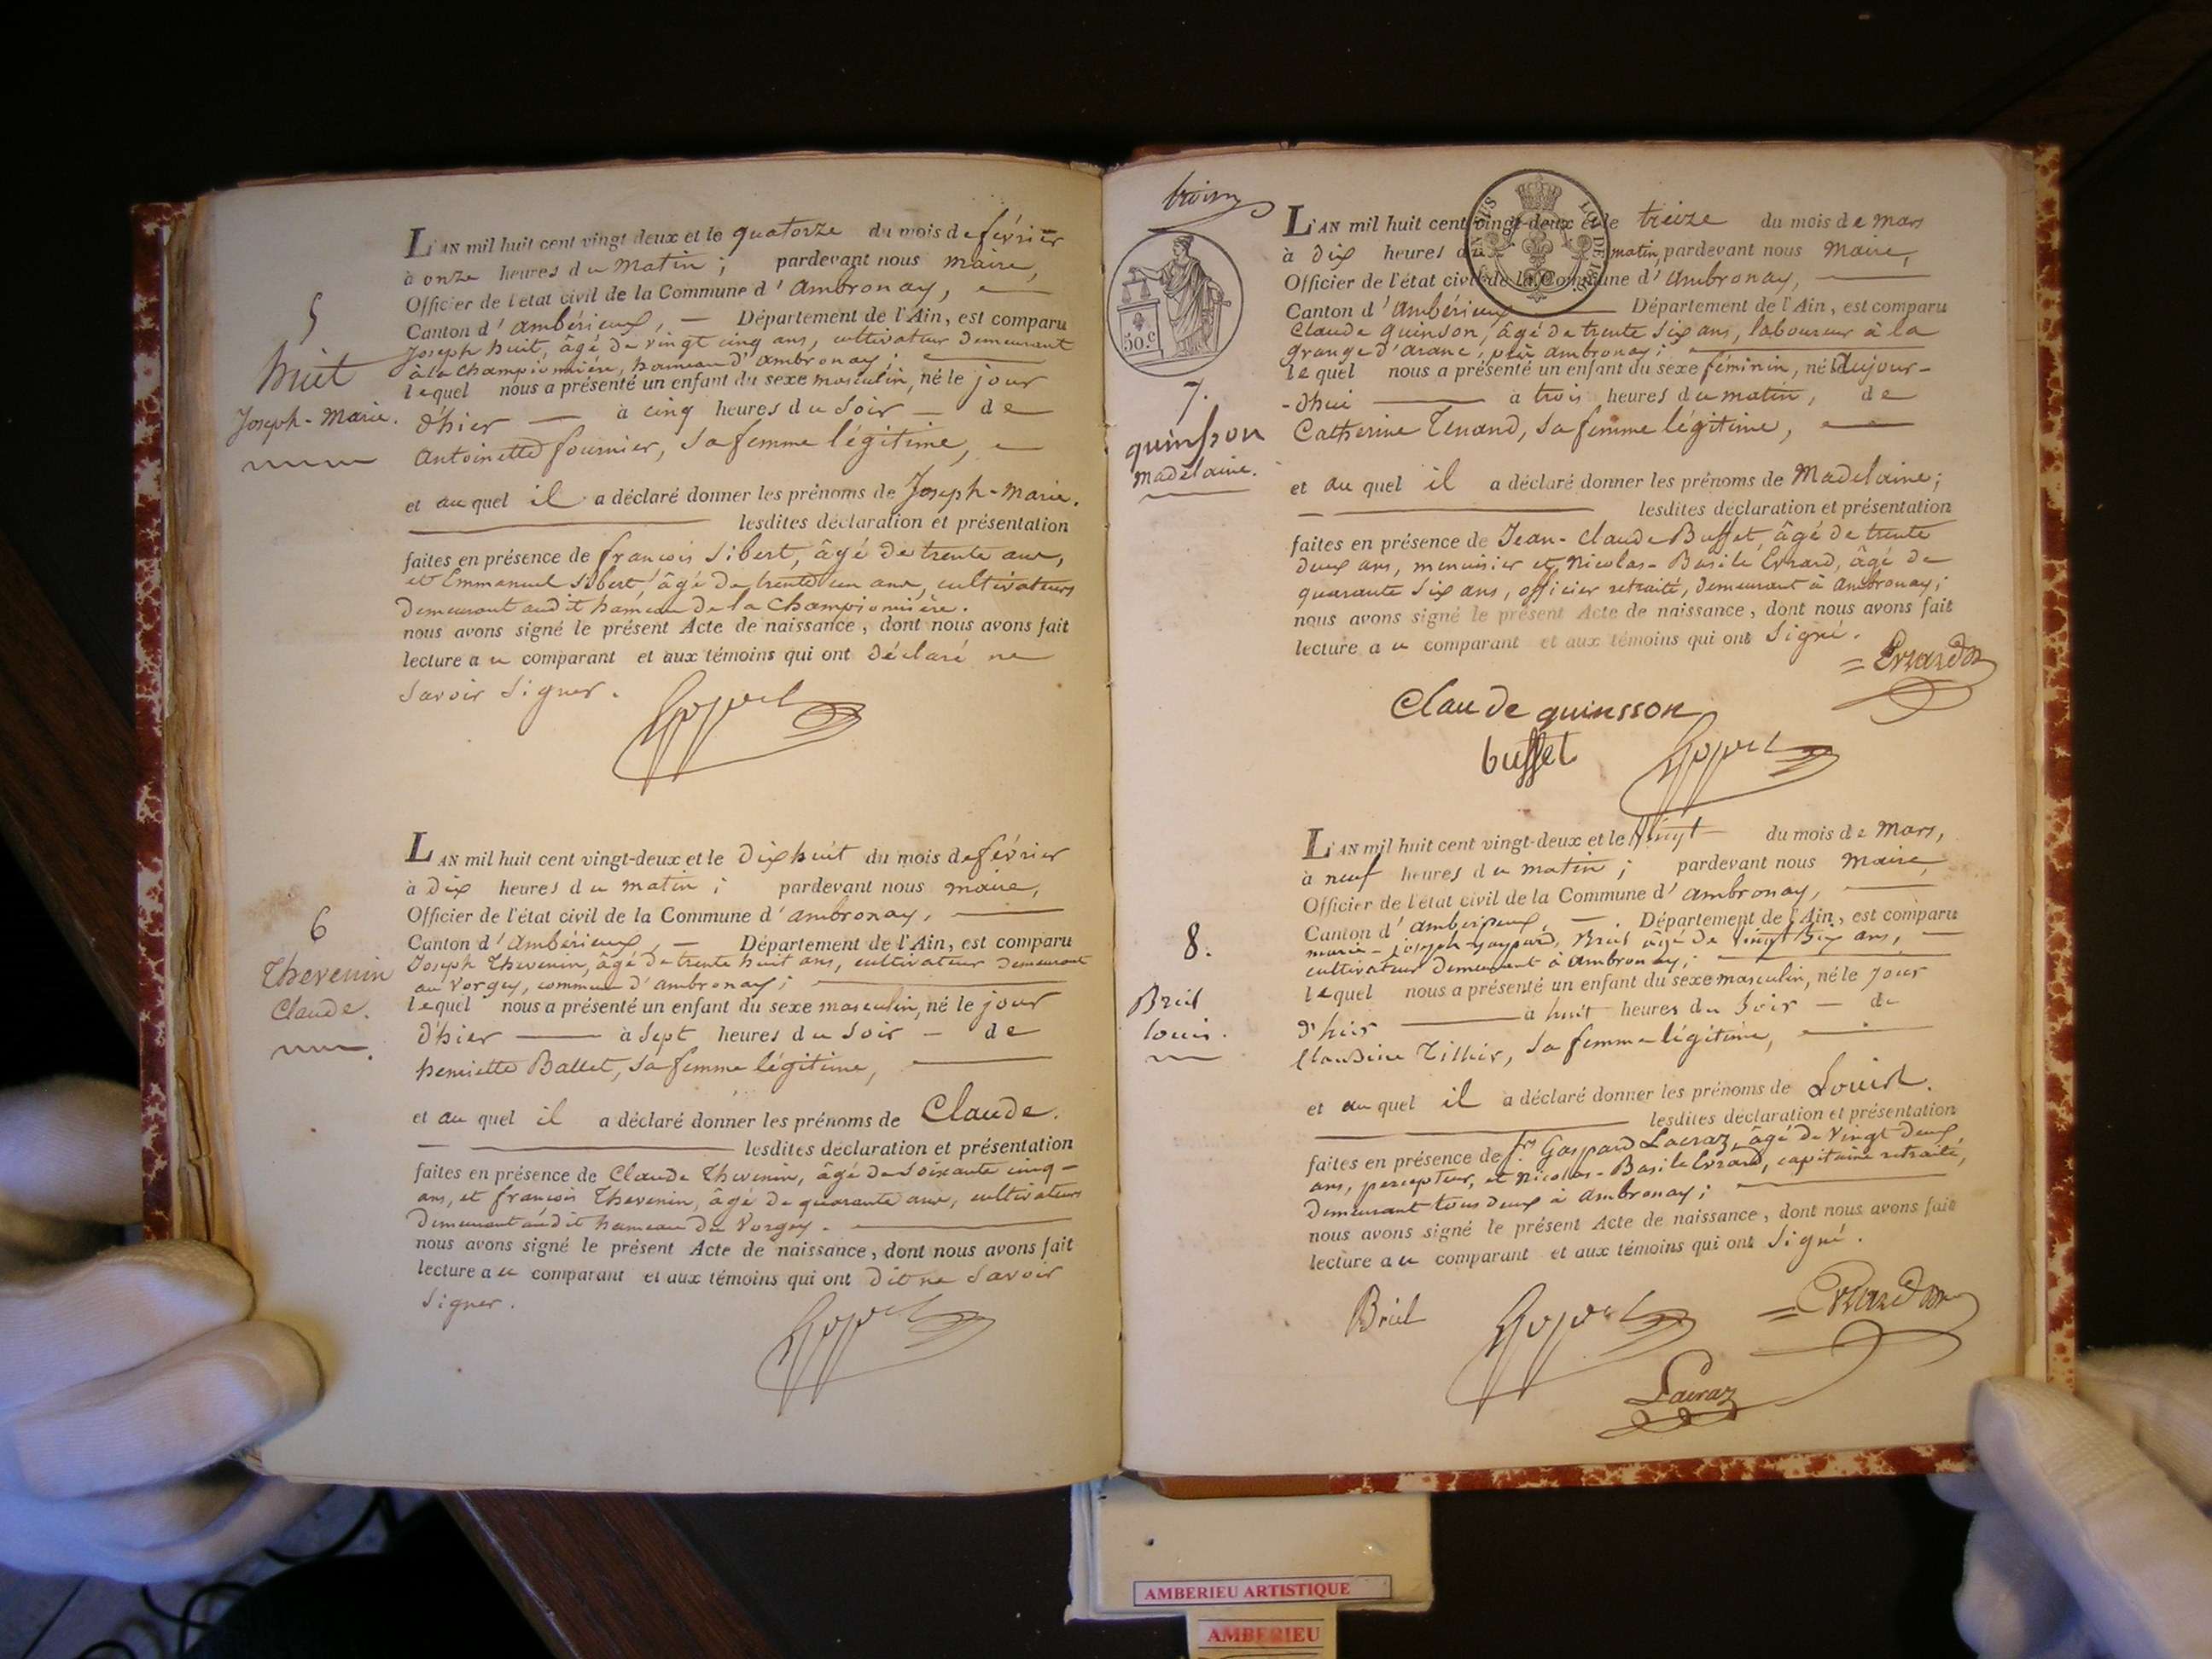 5
huit
Joseph-Marie.
L'AN mil huit cent vingt deux et le quatorze du mois de février
à onze heures du Matin ; pardevant nous maire,
Officier de l'état civil de la Commune d'Ambronay,
Canton d'ambérieux, — Département de l'Ain, est comparu
Joseph huit, âgé de vingt cinq ans, cultivateur demeurant
à la Championnière, hameau d'ambronay ;
lequel nous a présenté un enfant du sexe masculin, né le jour
d'hier — à cinq heures du soir — de
Antoinette fournier, sa femme légitime,
et auquel il a déclaré donner les prénoms de Joseph-Marie.
lesdites déclaration et présentation
faites en présence de françois Sibert, âgé de trente ans,
et Emmanuel Sibert, âgé de trente un ans, cultivateurs
demeurant audit hameau de la Championnière.
nous avons signé le présent Acte de naissance, dont nous avons fait
lecture au comparant et aux témoins qui ont déclaré ne
savoir signer.
6
Thevenin
Claude.
L'AN mil huit cent vingt-deux et le dix huit du mois de février
à dix heures du matin ; pardevant nous maire,
Officier de l'état civil de la Commune d'ambronay,
Canton d'Ambérieux, — Département de l'Ain, est comparu
Joseph Thevenin, âgé de trente huit ans, cultivateur demeurant
au Vorgey, commune d'ambronay ;
lequel nous a présenté un enfant du sexe masculin, né le jour
d'hier — à sept heures du soir — de
henriette Ballet, sa femme légitime,
et auquel il a déclaré donner les prénoms de Claude.
lesdites déclaration et présentation
faites en présence de Claude Thevenin, âgé de soixante cinq
ans, et françois Thevenin, âgé de quarante ans, cultivateurs
demeurant audit hameau du Vorgey.
nous avons signé le présent Acte de naissance, dont nous avons fait
lecture au comparant et aux témoins qui ont dit ne savoir
signer.
50.c
7.
quinsson
madelaine.
L'AN mil huit cent vingt-deux et le treize du mois de mars
à dix heures du matin, pardevant nous Maire,
Officier de l'état civil de la Commune d'Ambronay,
Canton d'Ambérieux — Département de l'Ain, est comparu
Claude quinson, âgé de trente six ans, laboureur à la
grange d'arane, près ambronay ;
lequel nous a présenté un enfant du sexe féminin, né aujour-
-dhui — à trois heures du matin, de
Catherine Tenand, sa femme légitime,
et auquel il a déclaré donner les prénoms de Madelaine ;
lesdites déclaration et présentation
faites en présence de Jean-Claude Buffet, âgé de trente
deux ans, menuisier et Nicolas-Basile Evrard, âgé de
quarante six ans, officier retraité, demeurant à Ambronay ;
nous avons signé le présent Acte de naissance, dont nous avons fait
lecture au comparant et aux témoins qui ont signé.
Claude quinsson
buffet
8.
Breil
louis.
L'AN mil huit cent vingt-deux et le Vingt du mois de Mars,
à neuf heures du matin ; pardevant nous maire,
Officier de l'état civil de la Commune d'ambronay,
Canton d'ambérieux, — Département de l'Ain, est comparu
marie-joseph-gaspard Breil âgé de vingt six ans,
cultivateur demeurant à ambronay ;
lequel nous a présenté un enfant du sexe masculin, né le jour
d'hier — à huit heures du soir — de
Claudine Tillier, sa femme légitime,
et auquel il a déclaré donner les prénoms de Louis.
lesdites déclaration et présentation
faites en présence de Gaspard Lacraz, âgé de vingt deux
ans, percepteur, et Nicolas-Basile Evrard, capitaine retraité,
demeurant tous deux à ambronay ;
nous avons signé le présent Acte de naissance, dont nous avons fait
lecture au comparant et aux témoins qui ont signé.
Breil
Lacraz
AMBERIEU ARTISTIQUE
AMBERIEU